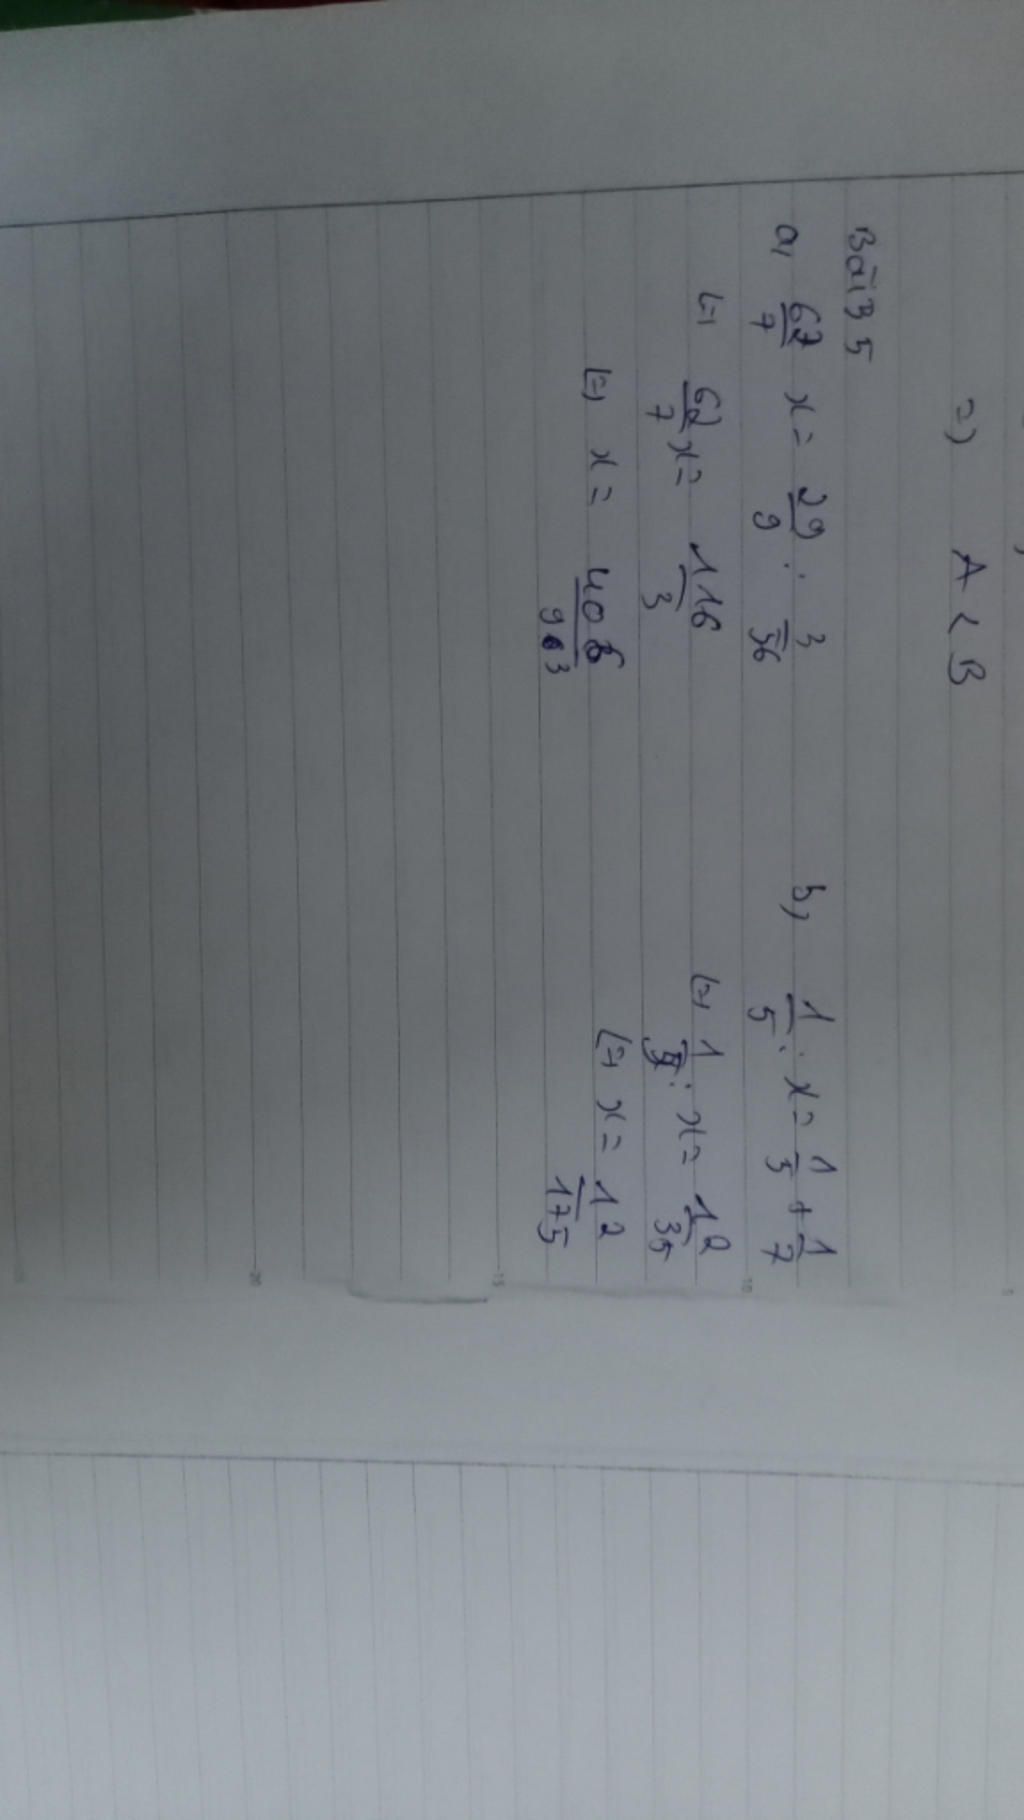 =) A < B
Bài 35
a, 62/7 x = 29/9 : 3/36
(=) 62/7 x = 116/3
(=) x = 406/93
b, 1/5 : x = 1/5 + 1/7
(=) 1/5 : x = 12/35
(=) x = 12/175
5
10
15
20